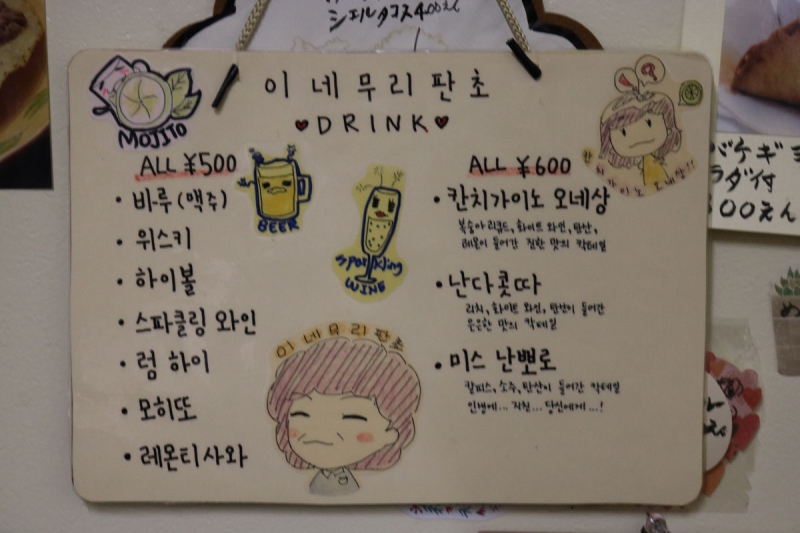 シェルタコス400えん
이네무리판초
♥DRINK♥
MOJITO
ALL ¥500
• 비-루 (맥주)
• 위스키
• 하이볼
• 스파클링 와인
• 럼 하이
• 모히또
• 레몬티사와
BEER
sparkling
WINE
이네무리판초
ALL ¥600
• 칸치가이노 오네상
복숭아리큐르, 화이트 와인, 탄산,
레몬이 들어간 진한 맛의 칵테일
• 난다콧따
리치, 화이트 와인, 탄산이 들어간
은은한 맛의 칵테일
• 미스 난뽀로
칼피스, 소주, 탄산이 들어간 칵테일
인생에... 지친... 당신에게...!
칸치가이노 오네상!!
バケギヨ
ラダ付
00えん